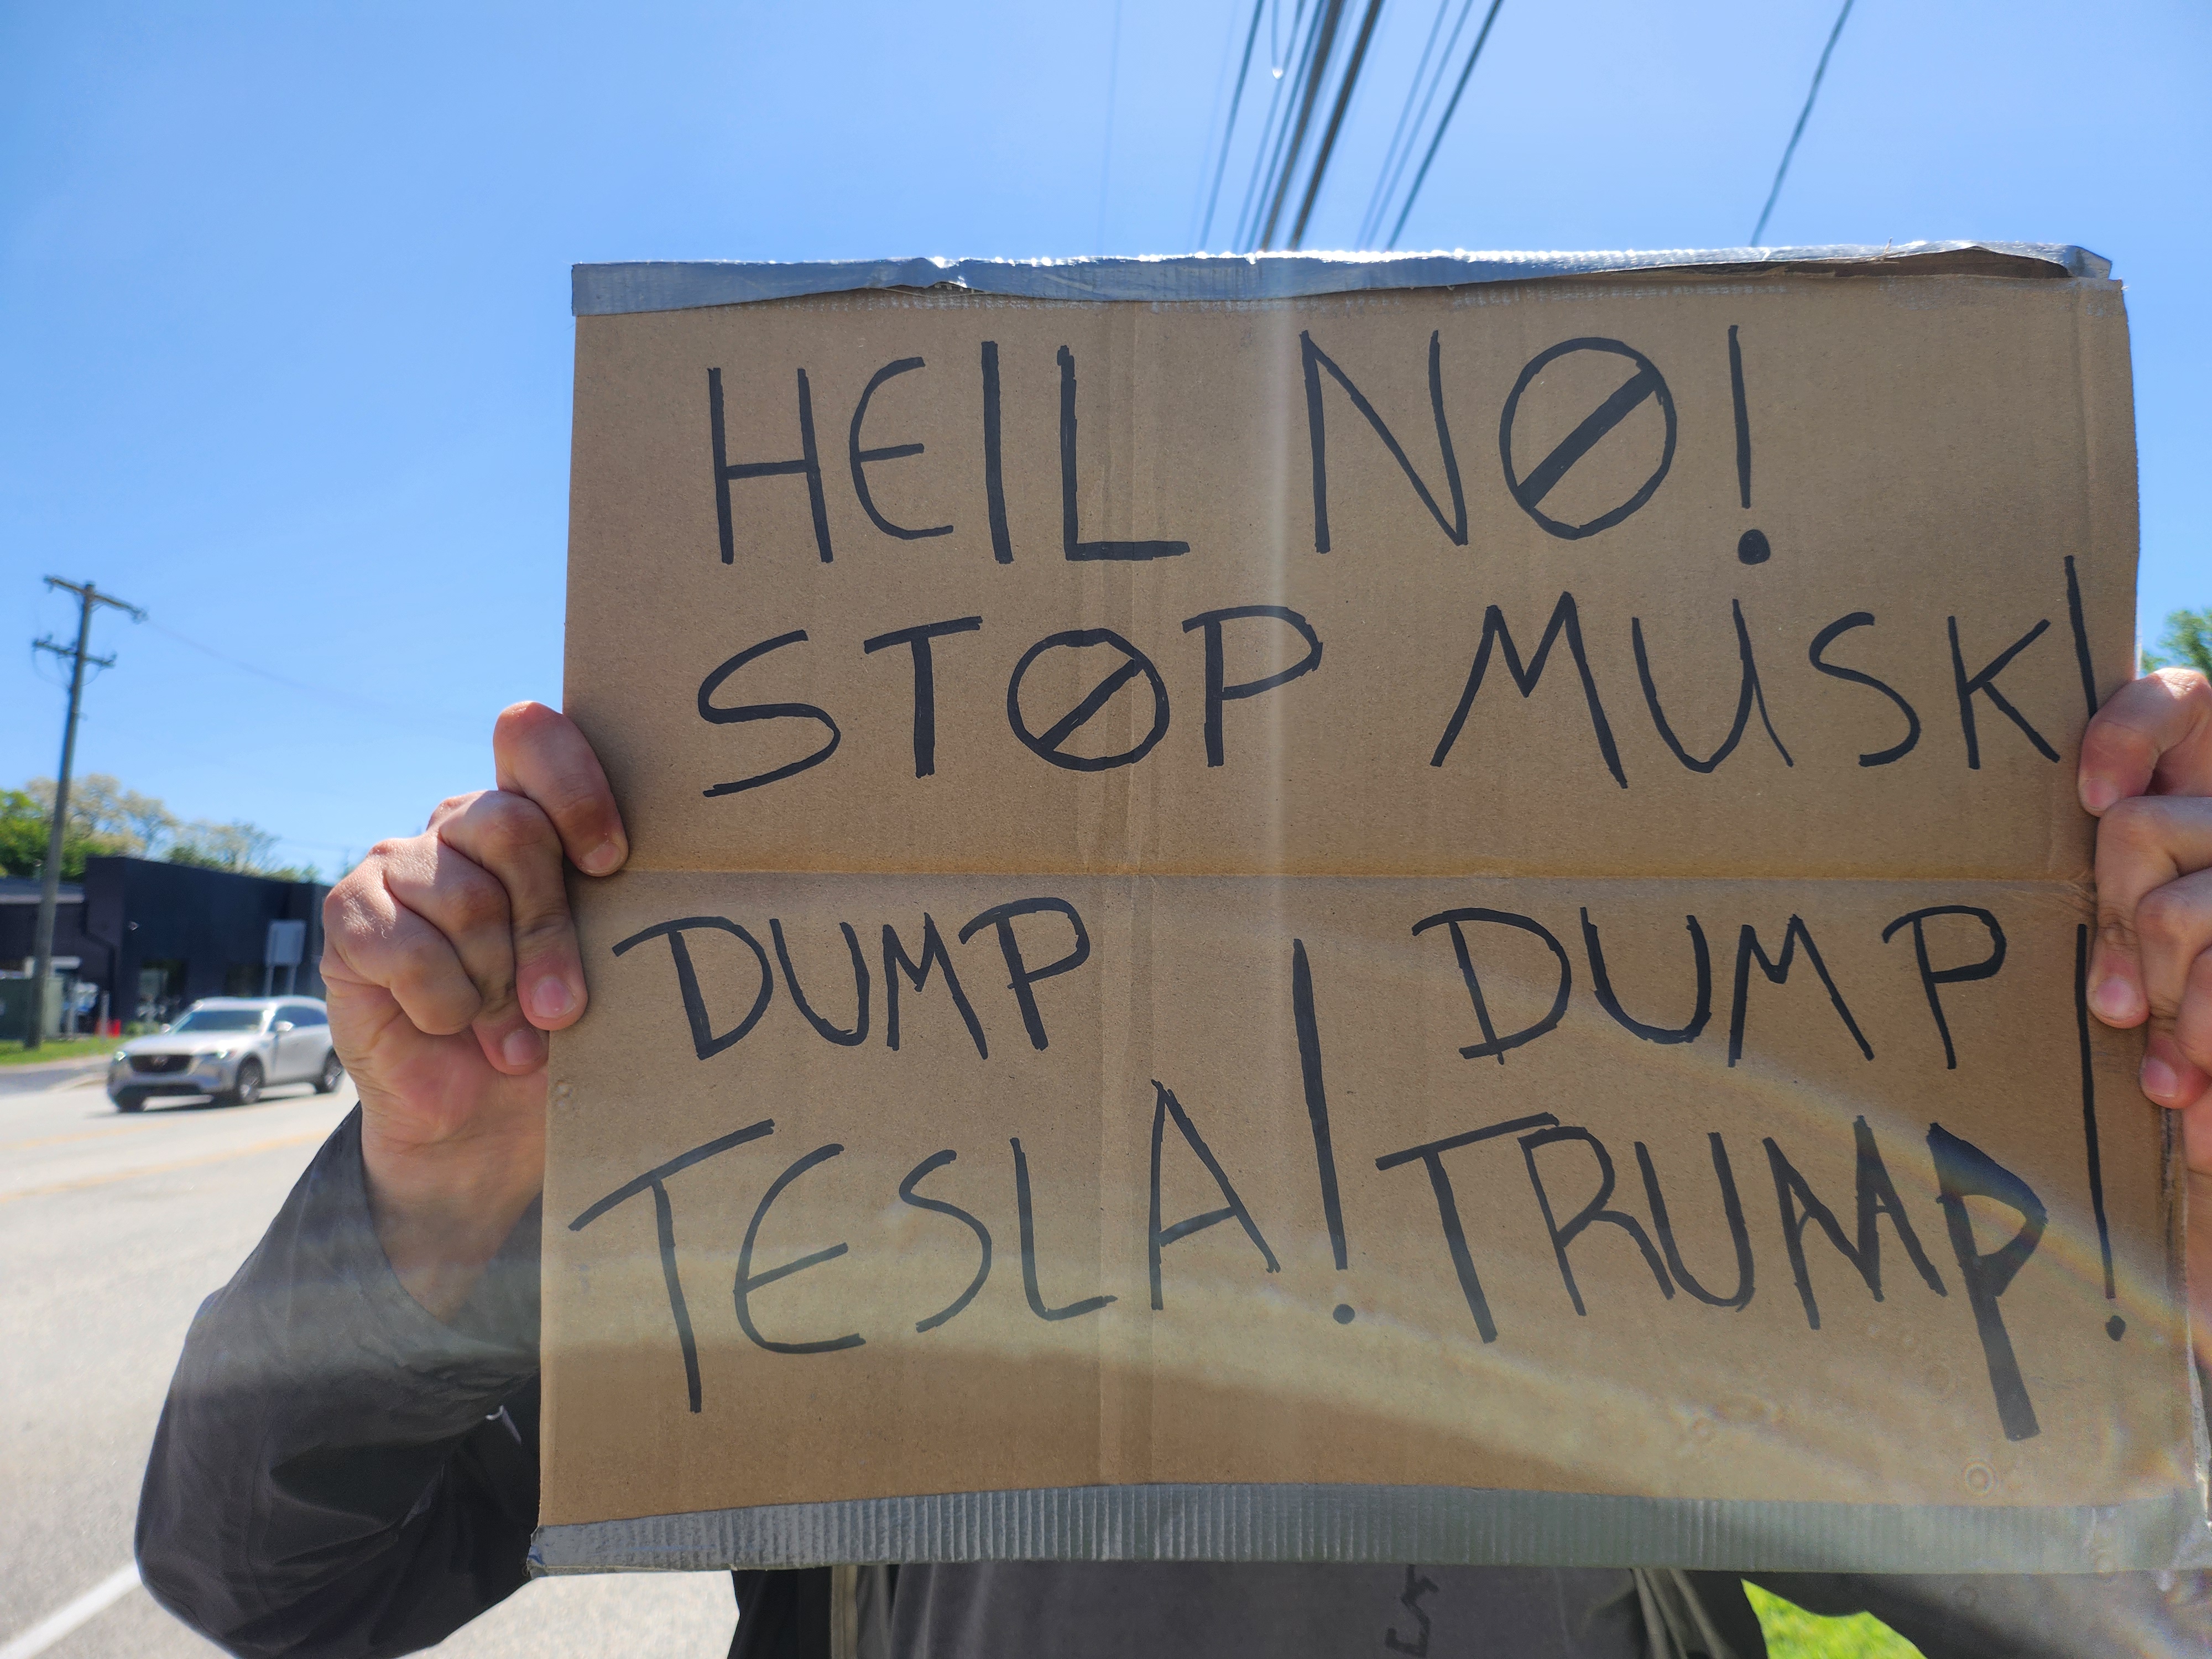 HEIL NO!
STOP MUSK!
DUMP TESLA!
DUMP TRUMP!